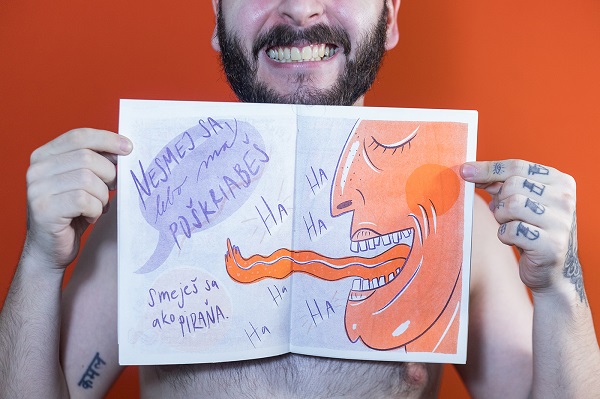 NESMEJ SA,
lebo ma
POŠKRIABEŠ
Smeješ sa
ako PIRAŇA.
HA
HA
HA
Ha
Ha
HA
कमल